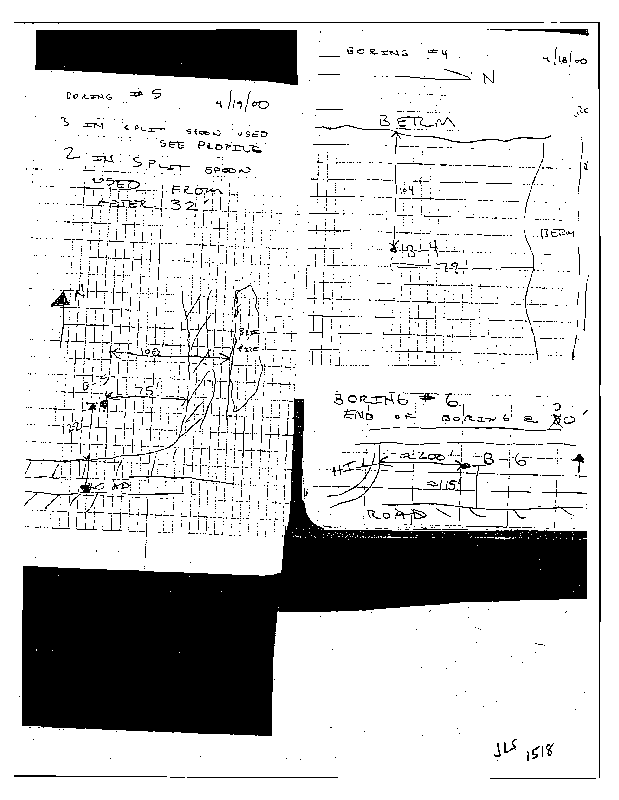 BORING #5
4/19/00
3 IN SPLIT SPOON USED
SEE PROFILE
2 IN SPLIT SPOON
USED FROM
AFTER 32'
N
100'
75'
BORING #4
4/18/00
N
BERM
64'
B-4
79'
BERM
BORING #6
END OF BORING @ 30'
HILL
≈200'
B-6
≈115'
ROAD
JLS 1518